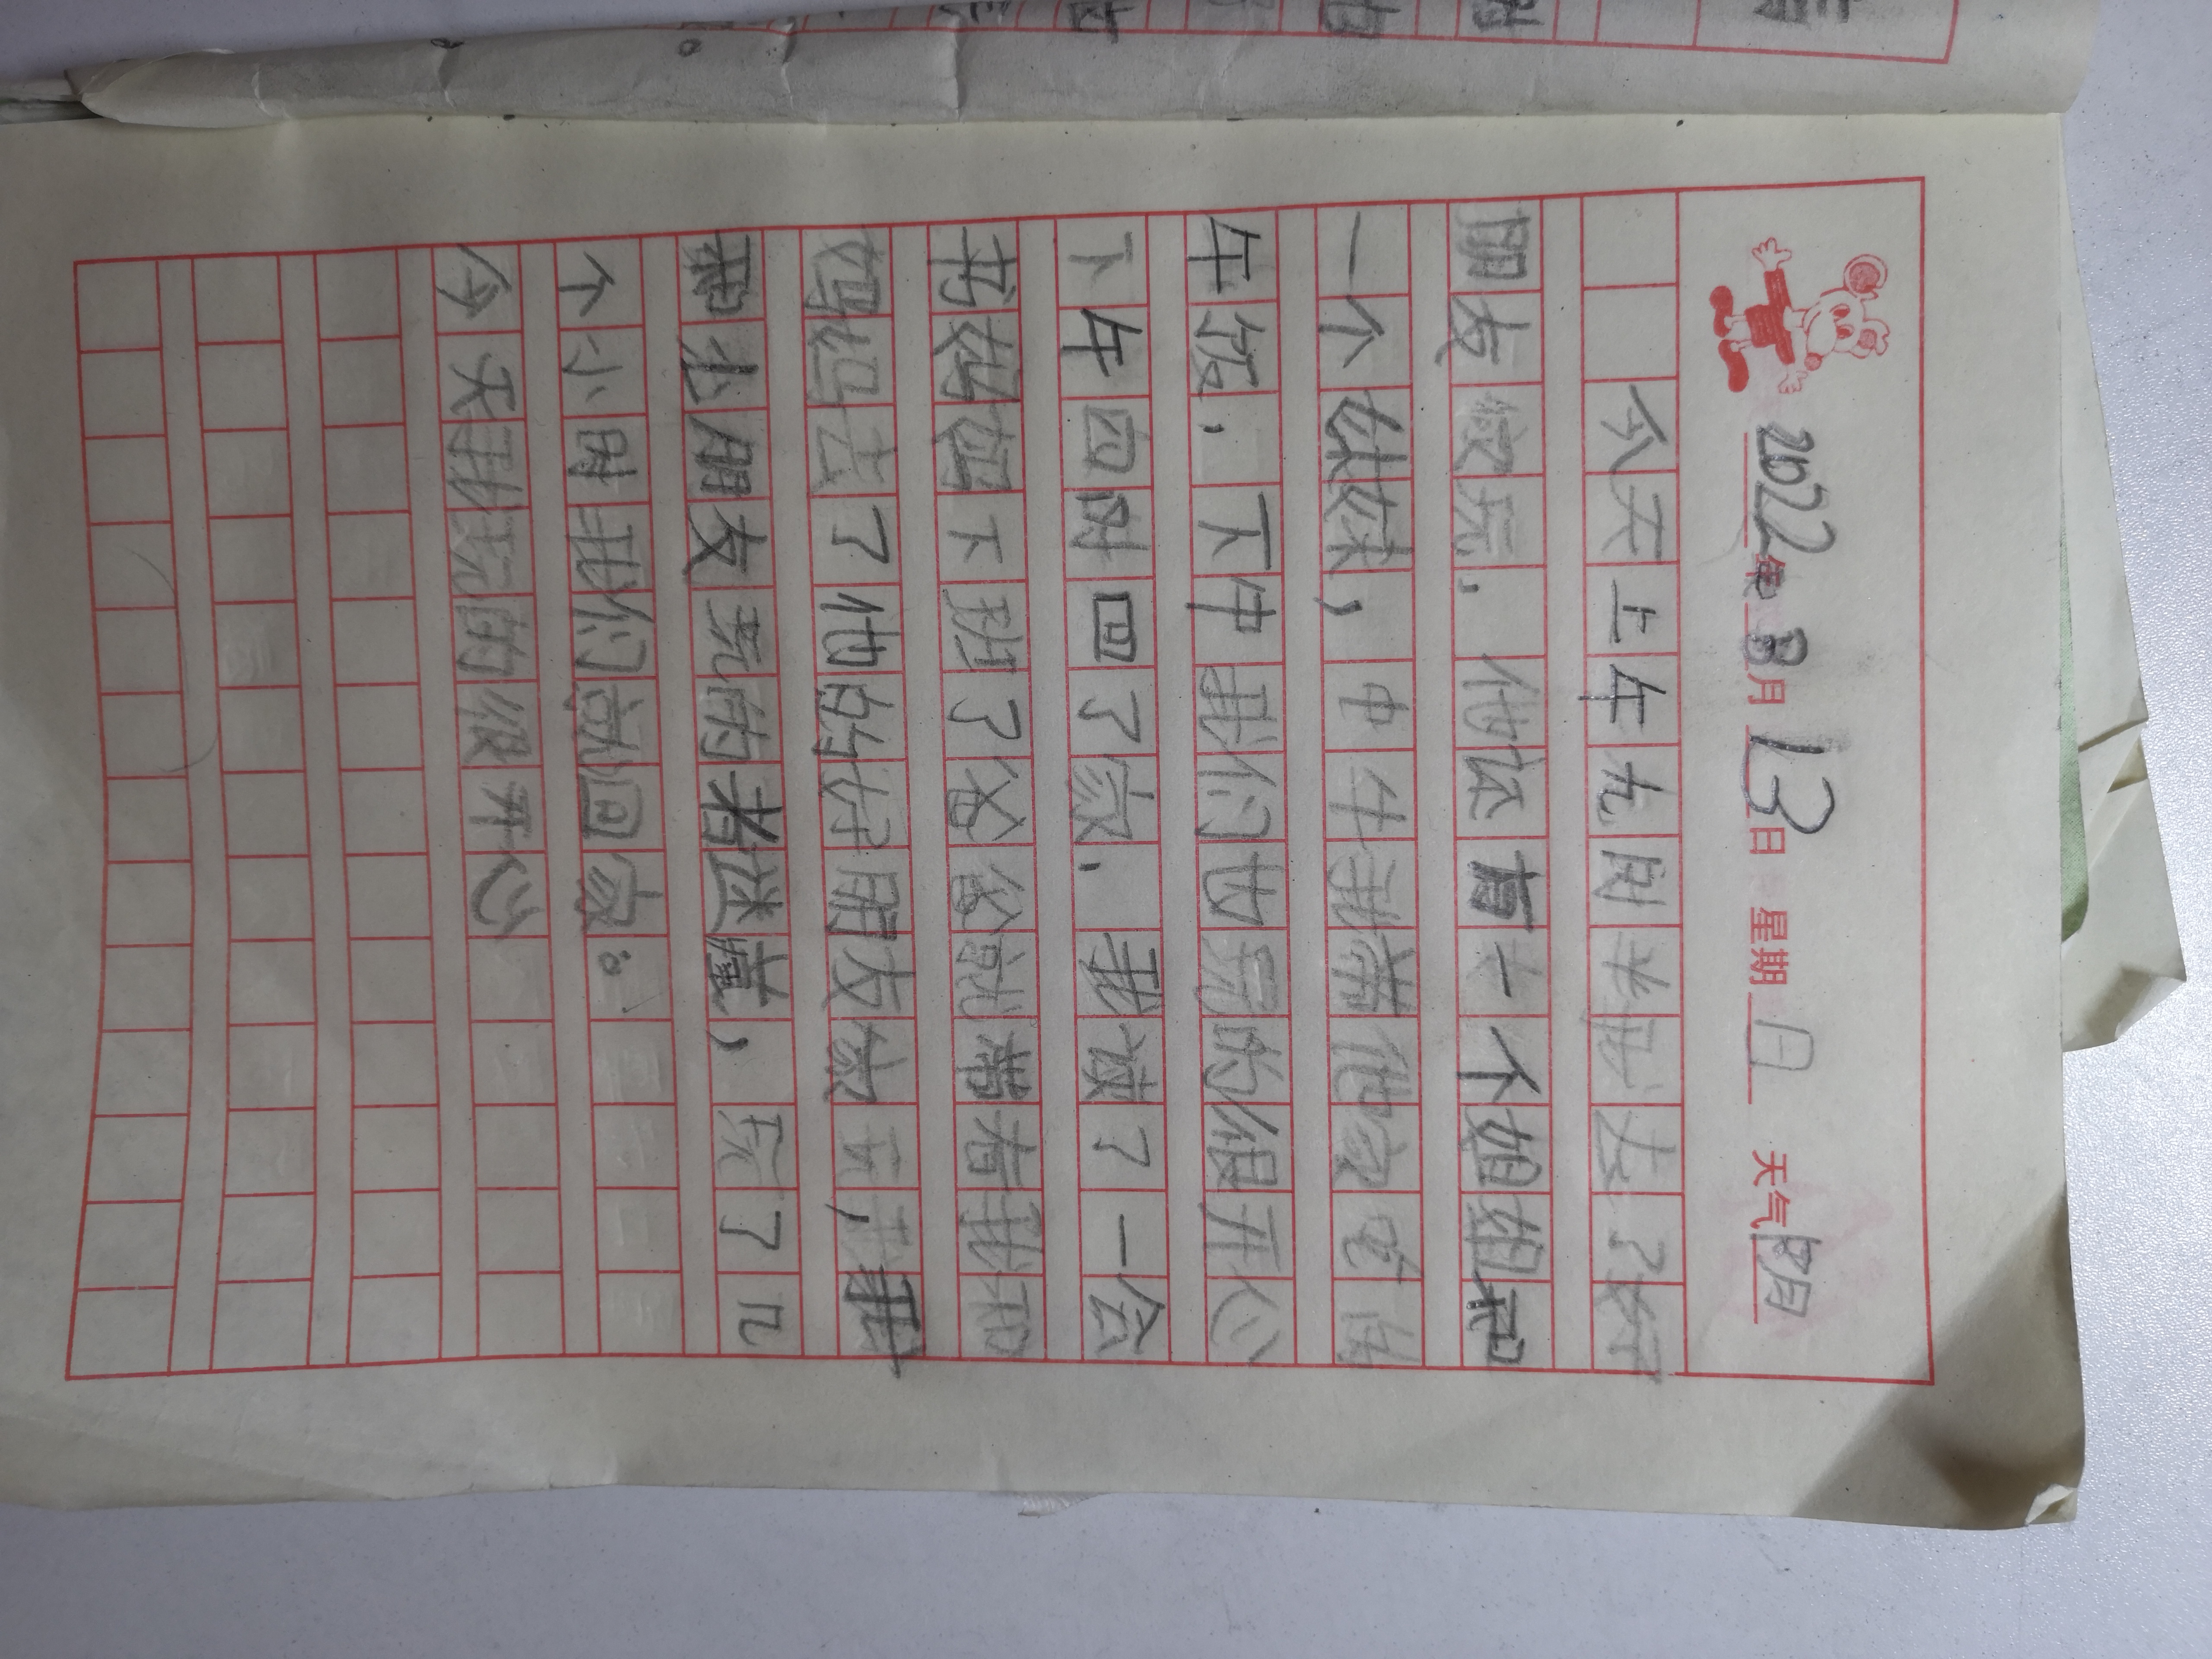 2022年8月13日 星期日 天气阴
今天上午九时半我去了好
朋友家玩,他还有一个姐姐和
一个妹妹,中午我在他家吃的
午饭,下午我们也玩的很开心
下午四时回了家,我读了一会
书妈妈下班了爸爸就带着我和
妈妈去了他的好朋友家玩,我
和小朋友玩的捉迷藏,玩了几
个小时我们就回家。
今天我玩的很开心